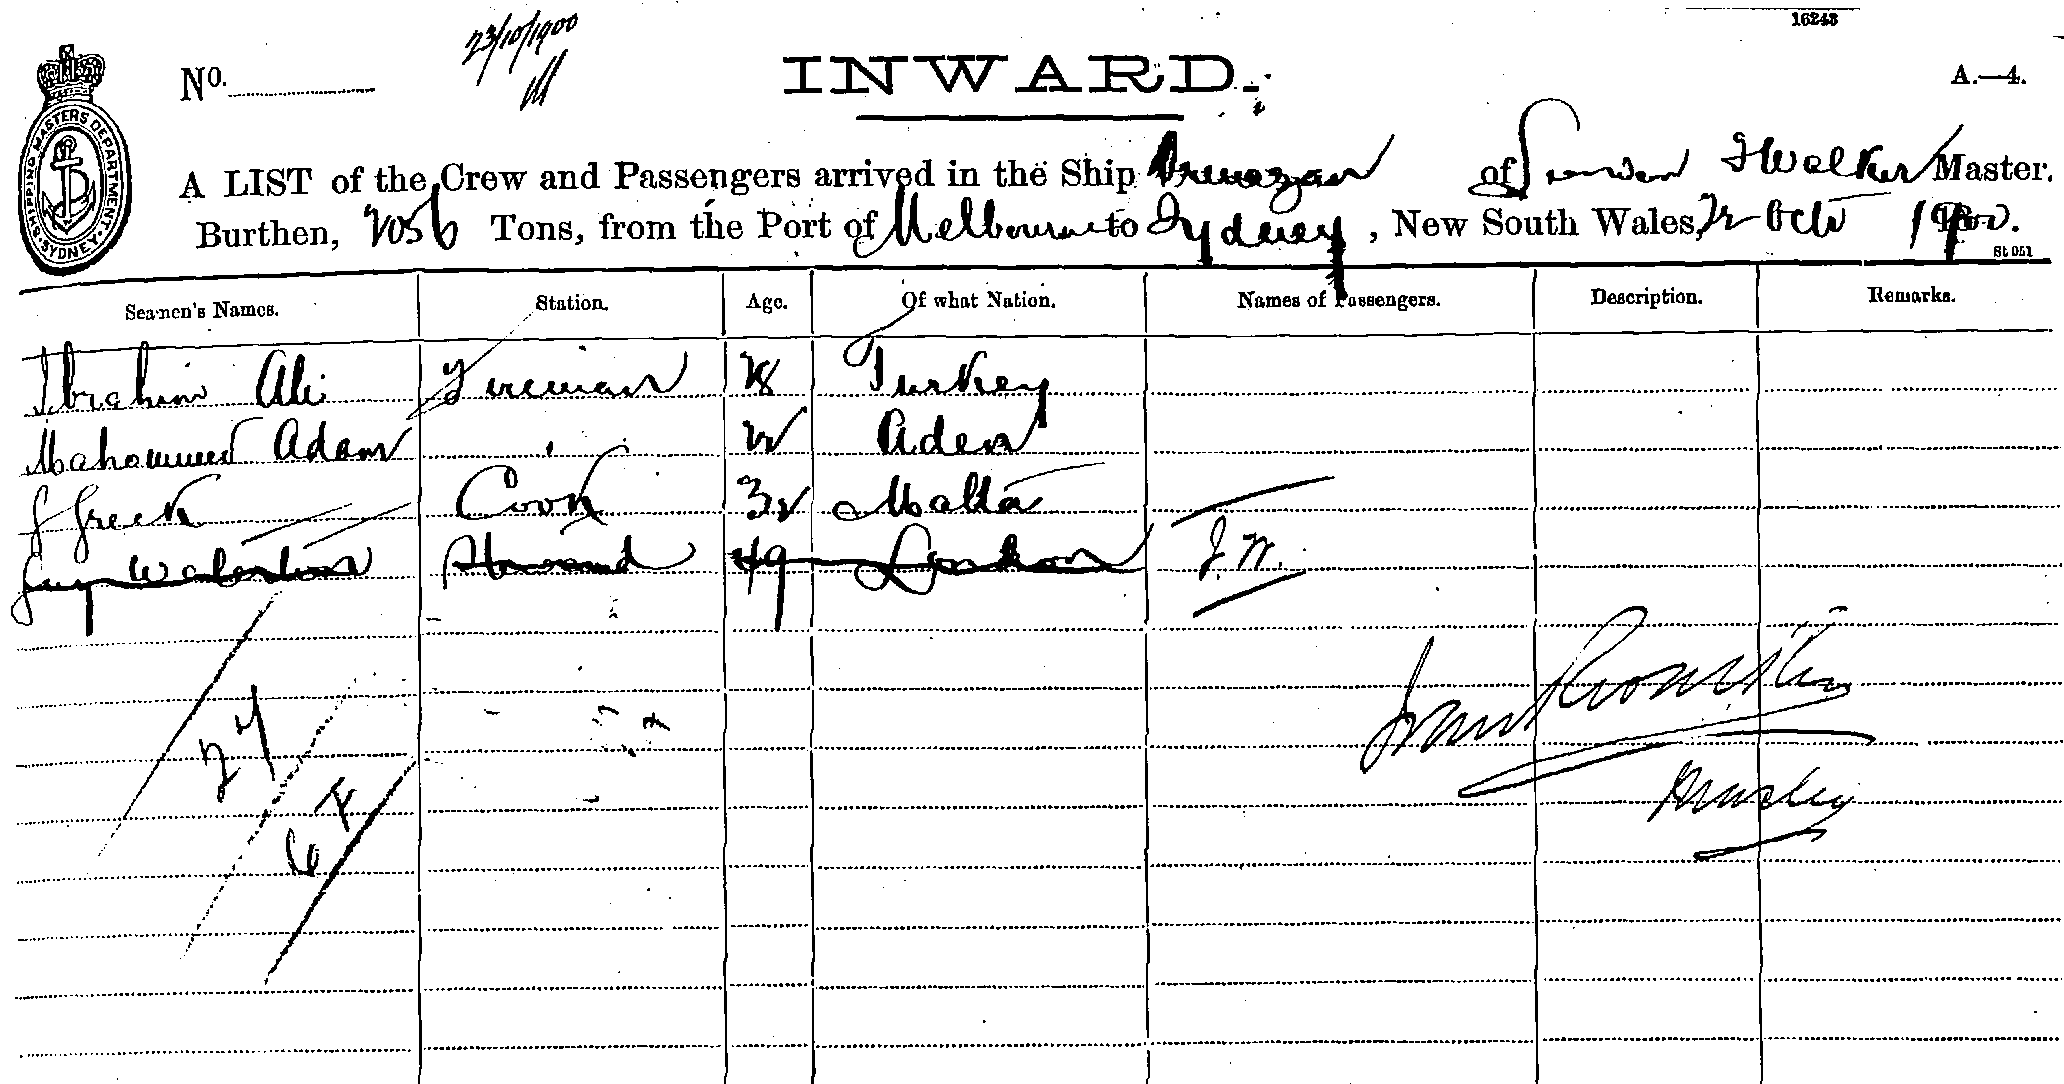 16243
23/10/1900
No.
INWARD.
A.—4.
SHIPPING MASTERS DEPARTMENT. SYDNEY.
A LIST of the Crew and Passengers arrived in the Ship of Walker Master.
Burthen, 2056 Tons, from the Port of Melbourne to Sydney, New South Wales, 22 Oct 1900.
St 051
Seamen's Names. Station. Age. Of what Nation. Names of Passengers. Description. Remarks.
Ibrahim Ali Fireman 28 Turkey
Mahommed Adam " 22 Aden
J Greek Cook 32 Malta
Guy Waterton Steward 49 London J.W.
27
6